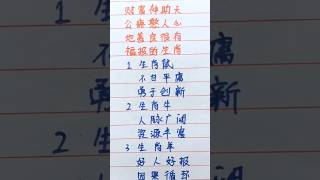 财富伸助夫
公麻憨人心
地善良很有
福报的生肖
1 生肖鼠
不甘平庸
勇于创新
2 生肖牛
人脉广阔
资源丰富
3 生肖羊
好人好报
因果循环